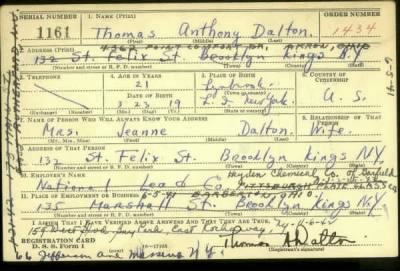 SERIAL NUMBER 1. NAME (Print) ORDER NUMBER
1161 Thomas Anthony Dalton. 1434
2. ADDRESS (Print)
132 St. Felix St. Brooklyn Kings N.Y.
(Number and street or R. F. D. number) (Town) (County) (State)
3. TELEPHONE 4. AGE IN YEARS 5. PLACE OF BIRTH 6. COUNTRY OF CITIZENSHIP
21
DATE OF BIRTH
3 23 19 New York. U. S.
(Exchange) (Number) (Mo.) (Day) (Yr.) (State or country)
7. NAME OF PERSON WHO WILL ALWAYS KNOW YOUR ADDRESS 8. RELATIONSHIP OF THAT PERSON
Mrs. Jeanne Dalton. Wife.
(Mr., Mrs., Miss) (First) (Middle) (Last)
9. ADDRESS OF THAT PERSON
132 St. Felix St. Brooklyn Kings N.Y.
(Number and street or R. F. D. number) (Town) (County) (State)
10. EMPLOYER'S NAME Heyden Chemical Co. of Garfield
National Lead Co. PITTSBURGH PLATE GLASS
11. PLACE OF EMPLOYMENT OR BUSINESS
135 Marshall St. Brooklyn Kings N.Y.
(Number and street or R. F. D. number) (Town) (County) (State)
I AFFIRM THAT I HAVE VERIFIED ABOVE ANSWERS AND THAT THEY ARE TRUE.
REGISTRATION CARD
D. S. S. Form 1 16—17105 Thomas A Dalton
66 Jefferson Ave Massena N.Y.